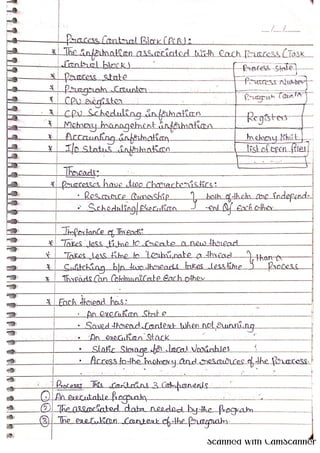 Process Control Block (PCB):
* The information associated with each process (Task
Control block) Process State
* Process state Process Number
* Program Counter Program Counter
* CPU register
* CPU Scheduling information Registers
* Memory management information
* Accounting information Memory limit
* I/O Status information list of open files
Threads:
* Processes have two characteristics:
• Resource Ownership } both of them are independ-
• Scheduling/Execution -ent of each other
Importance of Threads:
* Takes less time to create a new thread
* Takes less time to terminate a thread } than a
* Switching b/n two threads takes less time Process
* Threads can communicate each other
* Each thread has:
• An execution State
• Saved thread context when not running
• An execution Stack
• Static Storage for local Variables
• Access to the memory and resources of the process
Process This contains 3 components
① An executable Program
② The associated data needed by the Program
③ The execution context of the program
Scanned with CamScanner